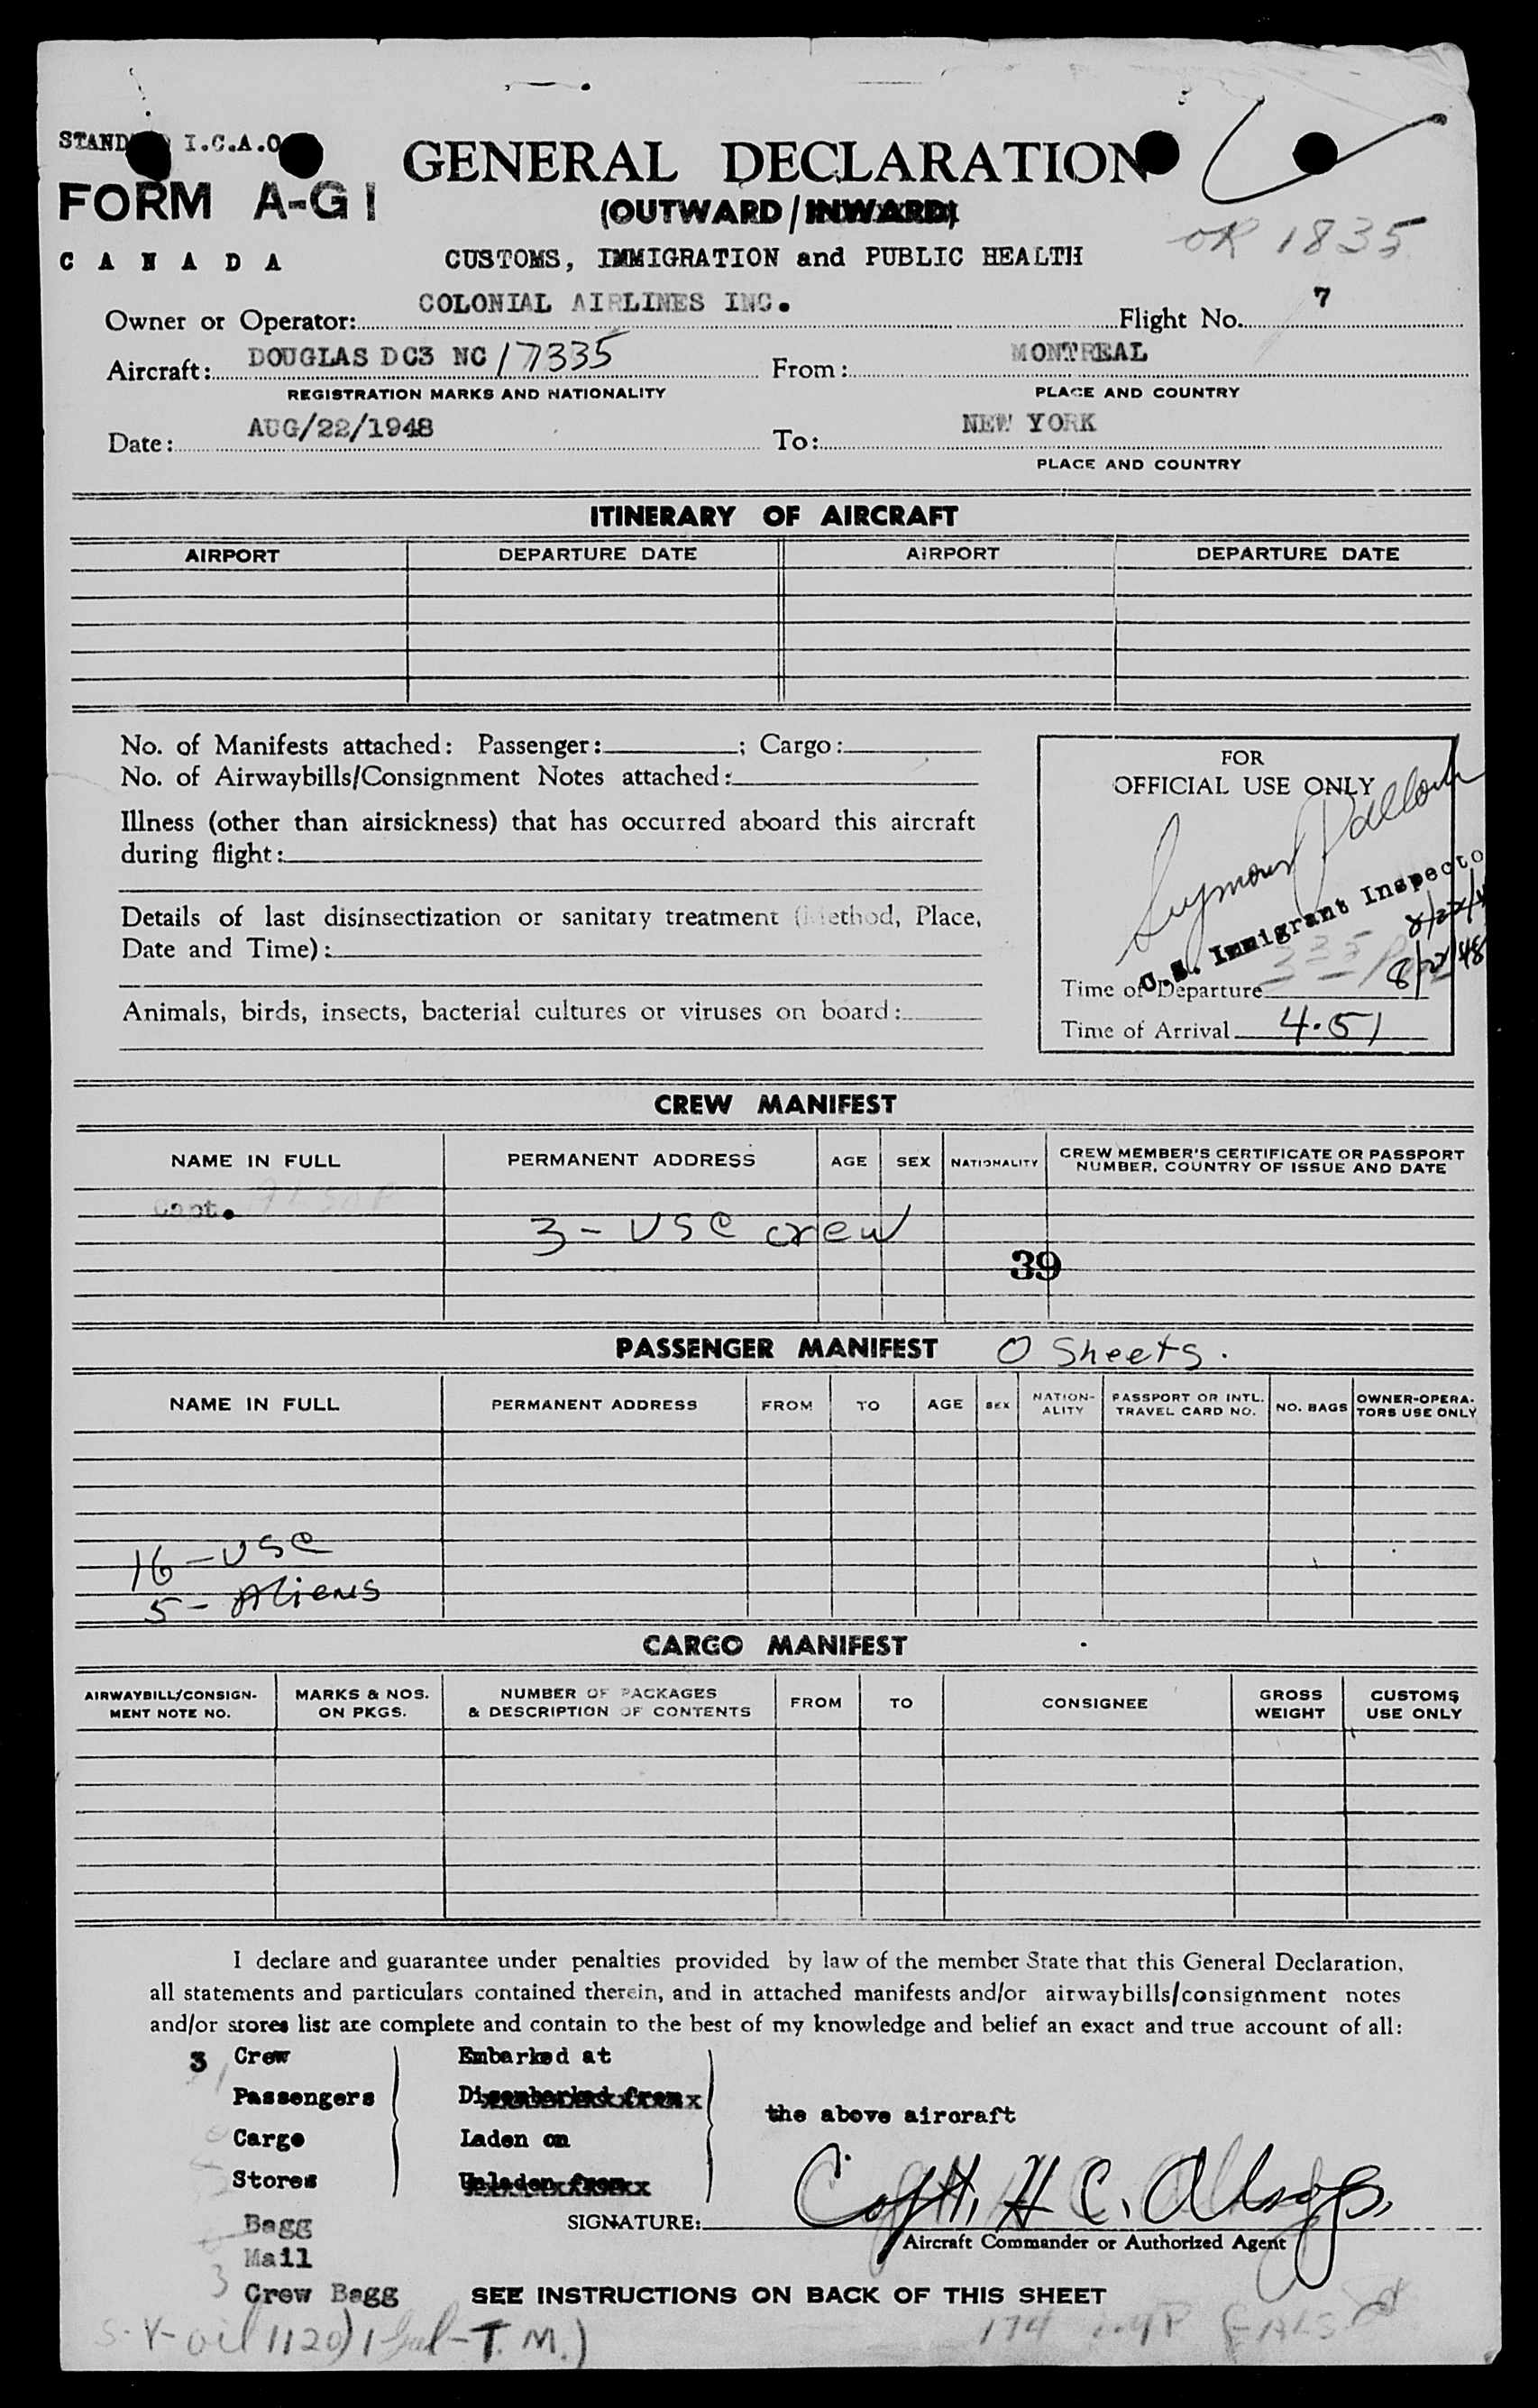 I.C.A.O
FORM A-G1
CANADA
GENERAL DECLARATION
(OUTWARD/INWARD)
CUSTOMS, IMMIGRATION and PUBLIC HEALTH
OR 1835
Owner or Operator: COLONIAL AIRLINES INC. Flight No. 7
Aircraft: DOUGLAS DC3 NC 17335 From: MONTREAL
REGISTRATION MARKS AND NATIONALITY PLACE AND COUNTRY
Date: AUG/22/1948 To: NEW YORK
PLACE AND COUNTRY
ITINERARY OF AIRCRAFT
AIRPORT DEPARTURE DATE AIRPORT DEPARTURE DATE
No. of Manifests attached: Passenger: ; Cargo:
No. of Airwaybills/Consignment Notes attached:
Illness (other than airsickness) that has occurred aboard this aircraft
during flight:
Details of last disinsectization or sanitary treatment (Method, Place,
Date and Time):
Animals, birds, insects, bacterial cultures or viruses on board:
FOR
OFFICIAL USE ONLY
Seymour
U.S. Immigrant Inspecto
8/22/48
Time of Departure
Time of Arrival 4.51
CREW MANIFEST
NAME IN FULL PERMANENT ADDRESS AGE SEX NATIONALITY CREW MEMBER'S CERTIFICATE OR PASSPORT
NUMBER, COUNTRY OF ISSUE AND DATE
Capt.
3 - USC crew
39
PASSENGER MANIFEST 0 Sheets.
NAME IN FULL PERMANENT ADDRESS FROM TO AGE SEX NATION-
ALITY PASSPORT OR INTL.
TRAVEL CARD NO. NO. BAGS OWNER-OPERA-
TORS USE ONLY
16 - USC
5 - Aliens
CARGO MANIFEST
AIRWAYBILL/CONSIGN-
MENT NOTE NO. MARKS & NOS.
ON PKGS. NUMBER OF PACKAGES
& DESCRIPTION OF CONTENTS FROM TO CONSIGNEE GROSS
WEIGHT CUSTOMS
USE ONLY
I declare and guarantee under penalties provided by law of the member State that this General Declaration,
all statements and particulars contained therein, and in attached manifests and/or airwaybills/consignment notes
and/or stores list are complete and contain to the best of my knowledge and belief an exact and true account of all:
3 Crew Embarked at
Passengers Disembarked from
the above aircraft
Cargo Laden on
Stores Unladen from
Bagg
SIGNATURE: Capt. H C. Alsop
Aircraft Commander or Authorized Agent
Mail
3 Crew Bagg SEE INSTRUCTIONS ON BACK OF THIS SHEET
oil T.M.)
174